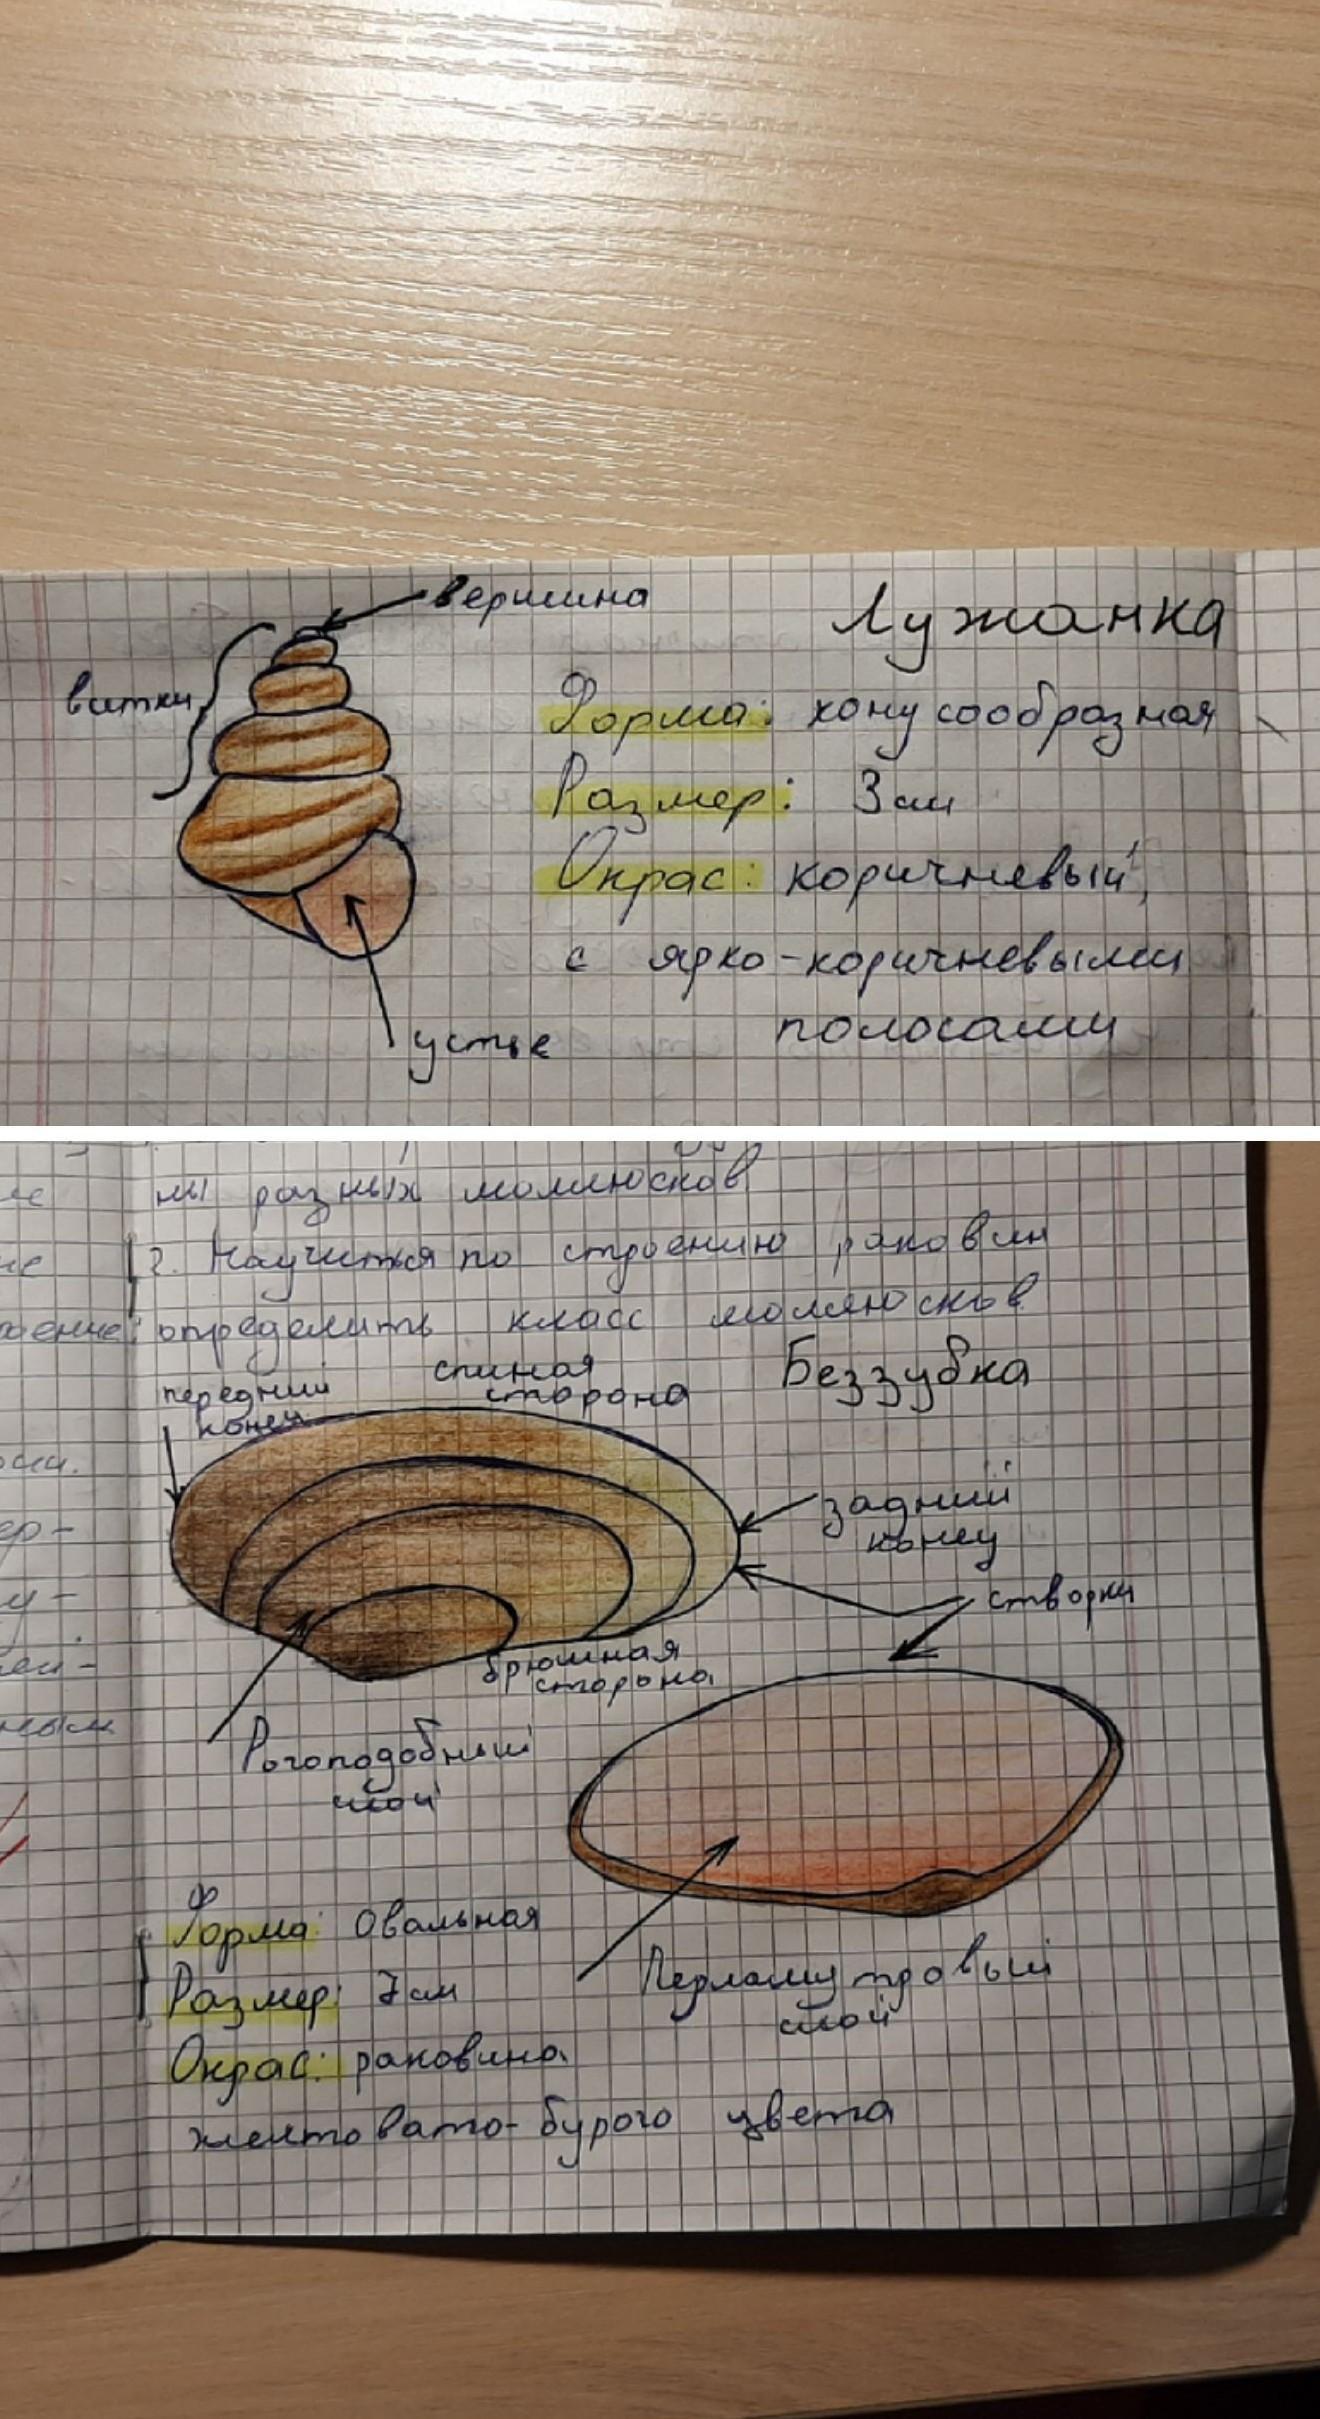 вершина
Лужанка
витки
Форма: конусообразная
Размер: 3 см
Окрас: коричневый,
с ярко-коричневыми
полосами
устье
ны разных моллюсков
2. Научиться по строению раковин
определить класс моллюсков
передний
конец
спиная
сторона
Беззубка
задний
конец
створки
брюшная
сторона
Рогоподобный
слой
Форма: Овальная
Размер: 7 см
Перламутровый
слой
Окрас: раковина
желтовато-бурого цвета